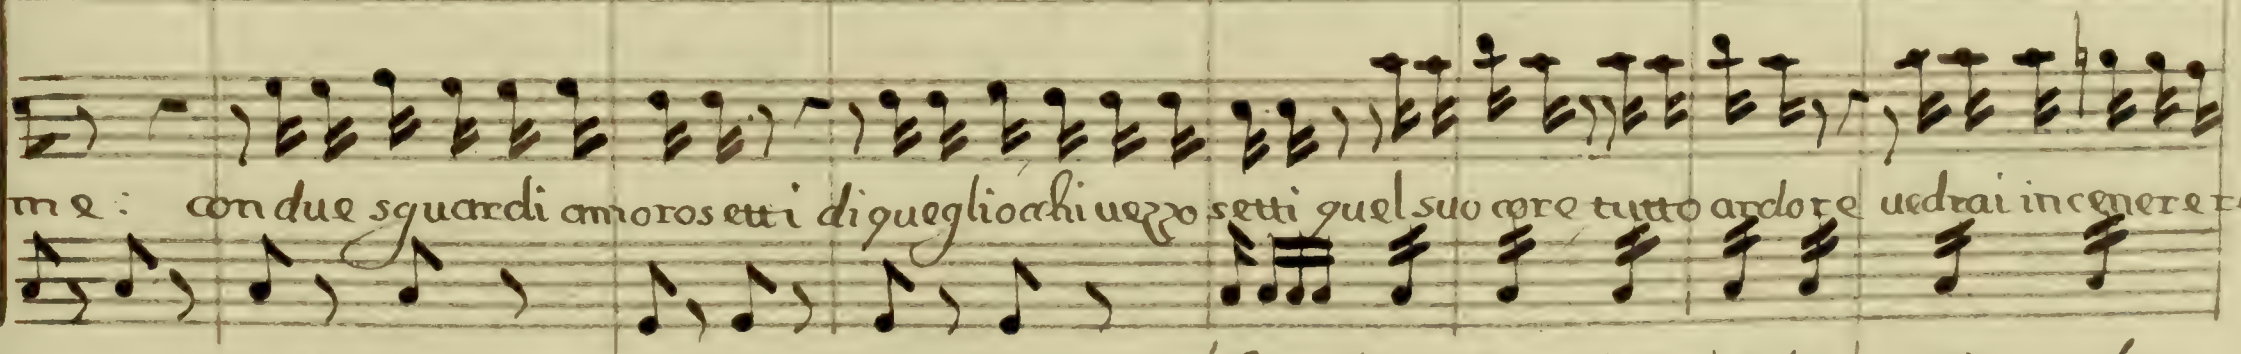 me: con due sguardi amorosetti di quegliocchi uezzosetti quel suo core tutto ardore uedrai incenerer